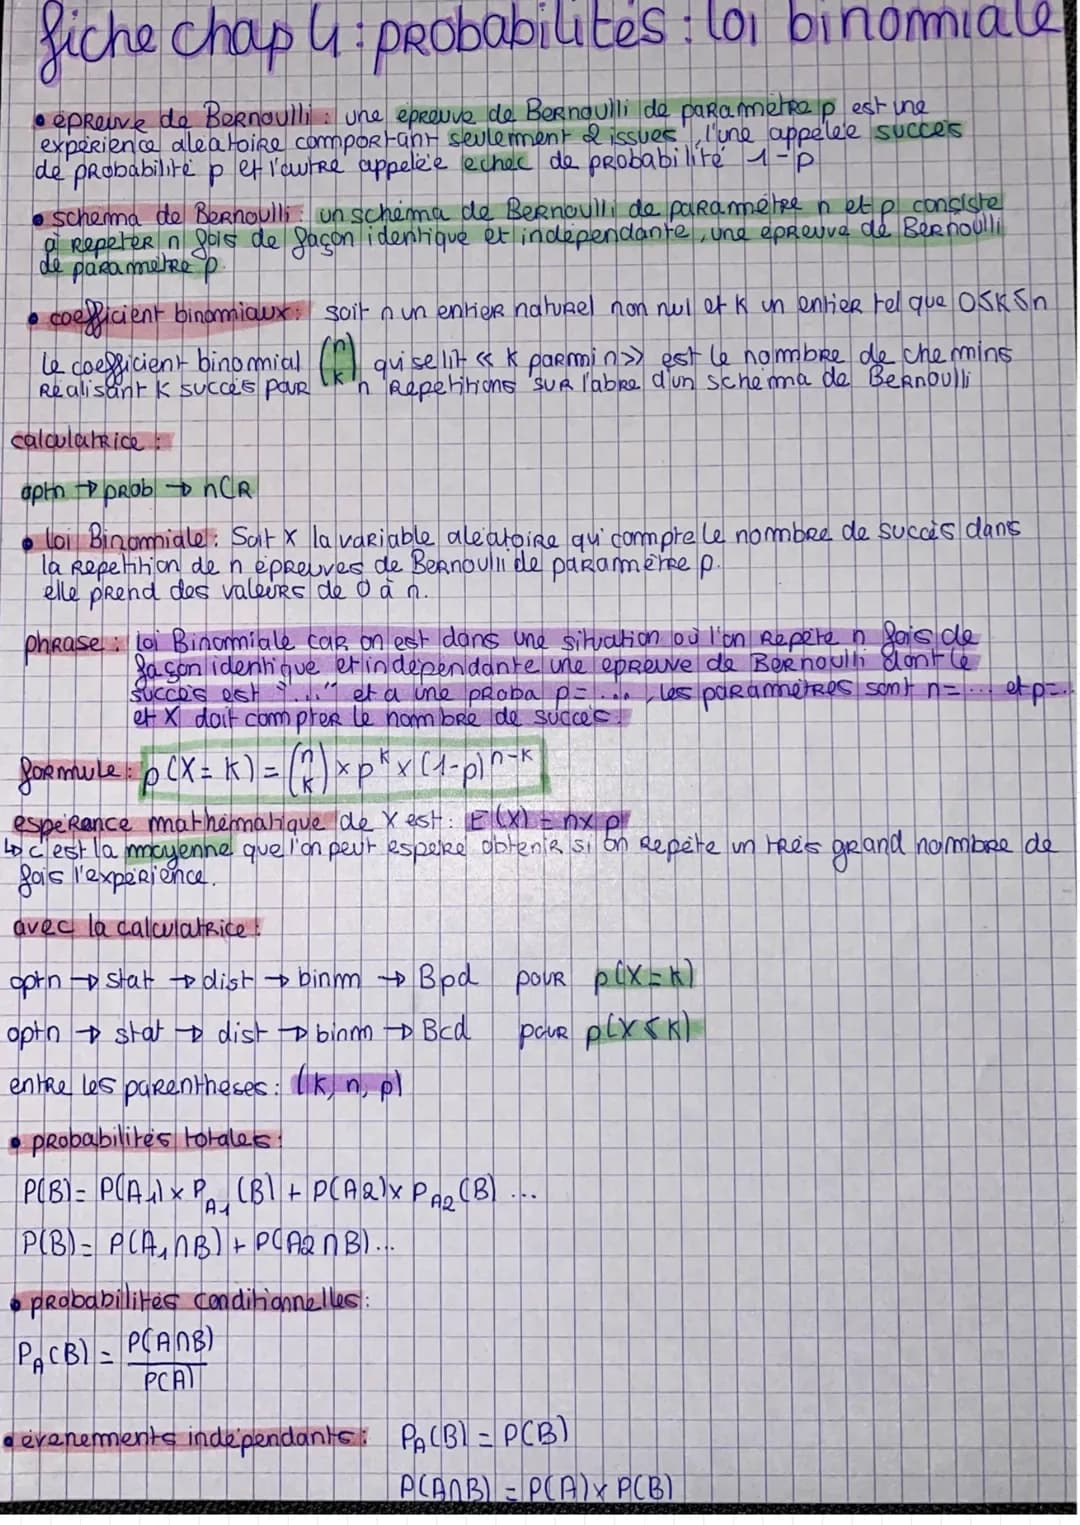 fiche chap 4 : probabilités : loi binomiale
• épreuve de Bernoulli : une épreuve de Bernoulli de paramètre p est une
expérience aléatoire comportant seulement 2 issues, l'une appelée succès
de probabilité p et l'autre appelée echec de probabilité 1-p
• schema de Bernoulli : un schéma de Bernoulli de paramètre n et p consiste
à repeter n fois de façon identique et indépendante, une épreuve de Bernoulli
de paramètre p.
• coefficient binomiaux : soit n un entier naturel non nul et k un entier tel que 0≤k≤n
Le coefficient binomial (n k) qui se lit << k parmi n >> est le nombre de chemins
Réalisant k succès pour n repetitions sur l'abre d'un schéma de Bernoulli
calculatrice :
optn → prob → nCR
• loi Binomiale : Soit X la variable aléatoire qui compte le nombre de succès dans
la repetition de n épreuves de Bernoulli de paramètre p.
elle prend des valeurs de 0 à n.
phrase : loi Binomiale car on est dans une situation où l'on repète n fois de
façon identique et indépendante une épreuve de Bernoulli dont le
succès est "..." et a une proba p = ..., les paramètres sont n = ... et p = ..
et X doit compter le nombre de succès.
formule : p(X = k) = (n k) × p^k × (1-p)^n-k
espérance mathématique de X est : E(X) = n×p
↳ c'est la moyenne que l'on peut espéré obtenir si on repète un très grand nombre de
fois l'expérience.
avec la calculatrice :
optn → stat → dist → binm → Bpd pour p(X = k)
optn → stat → dist → binm → Bcd pour p(X ≤ k)
entre les parentheses : (k, n, p)
• probabilités totales :
P(B) = P(A1) × P_A1 (B) + P(A2) × P_A2 (B) ...
P(B) = P(A1 ∩ B) + P(A2 ∩ B) ...
• probabilités conditionnelles :
P_A (B) = P(A∩B) / P(A)
• évenements indépendants : P_A (B) = P(B)
P(A∩B) = P(A) × P(B)